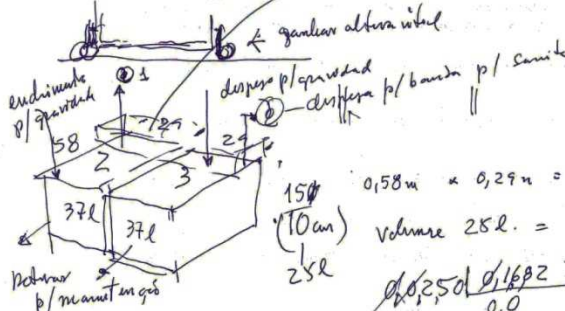 ganhar altura útil
① 1
enchimento p/gravidade
despeja p/gravidad
② despeja p/ bomba p/ sanita
58
29
29
2
3
37l
37l
15
(10cm)
25l
0,58m x 0,29m =
volume 25l. =
0,0250 0,1682
0,0
p/manutenção